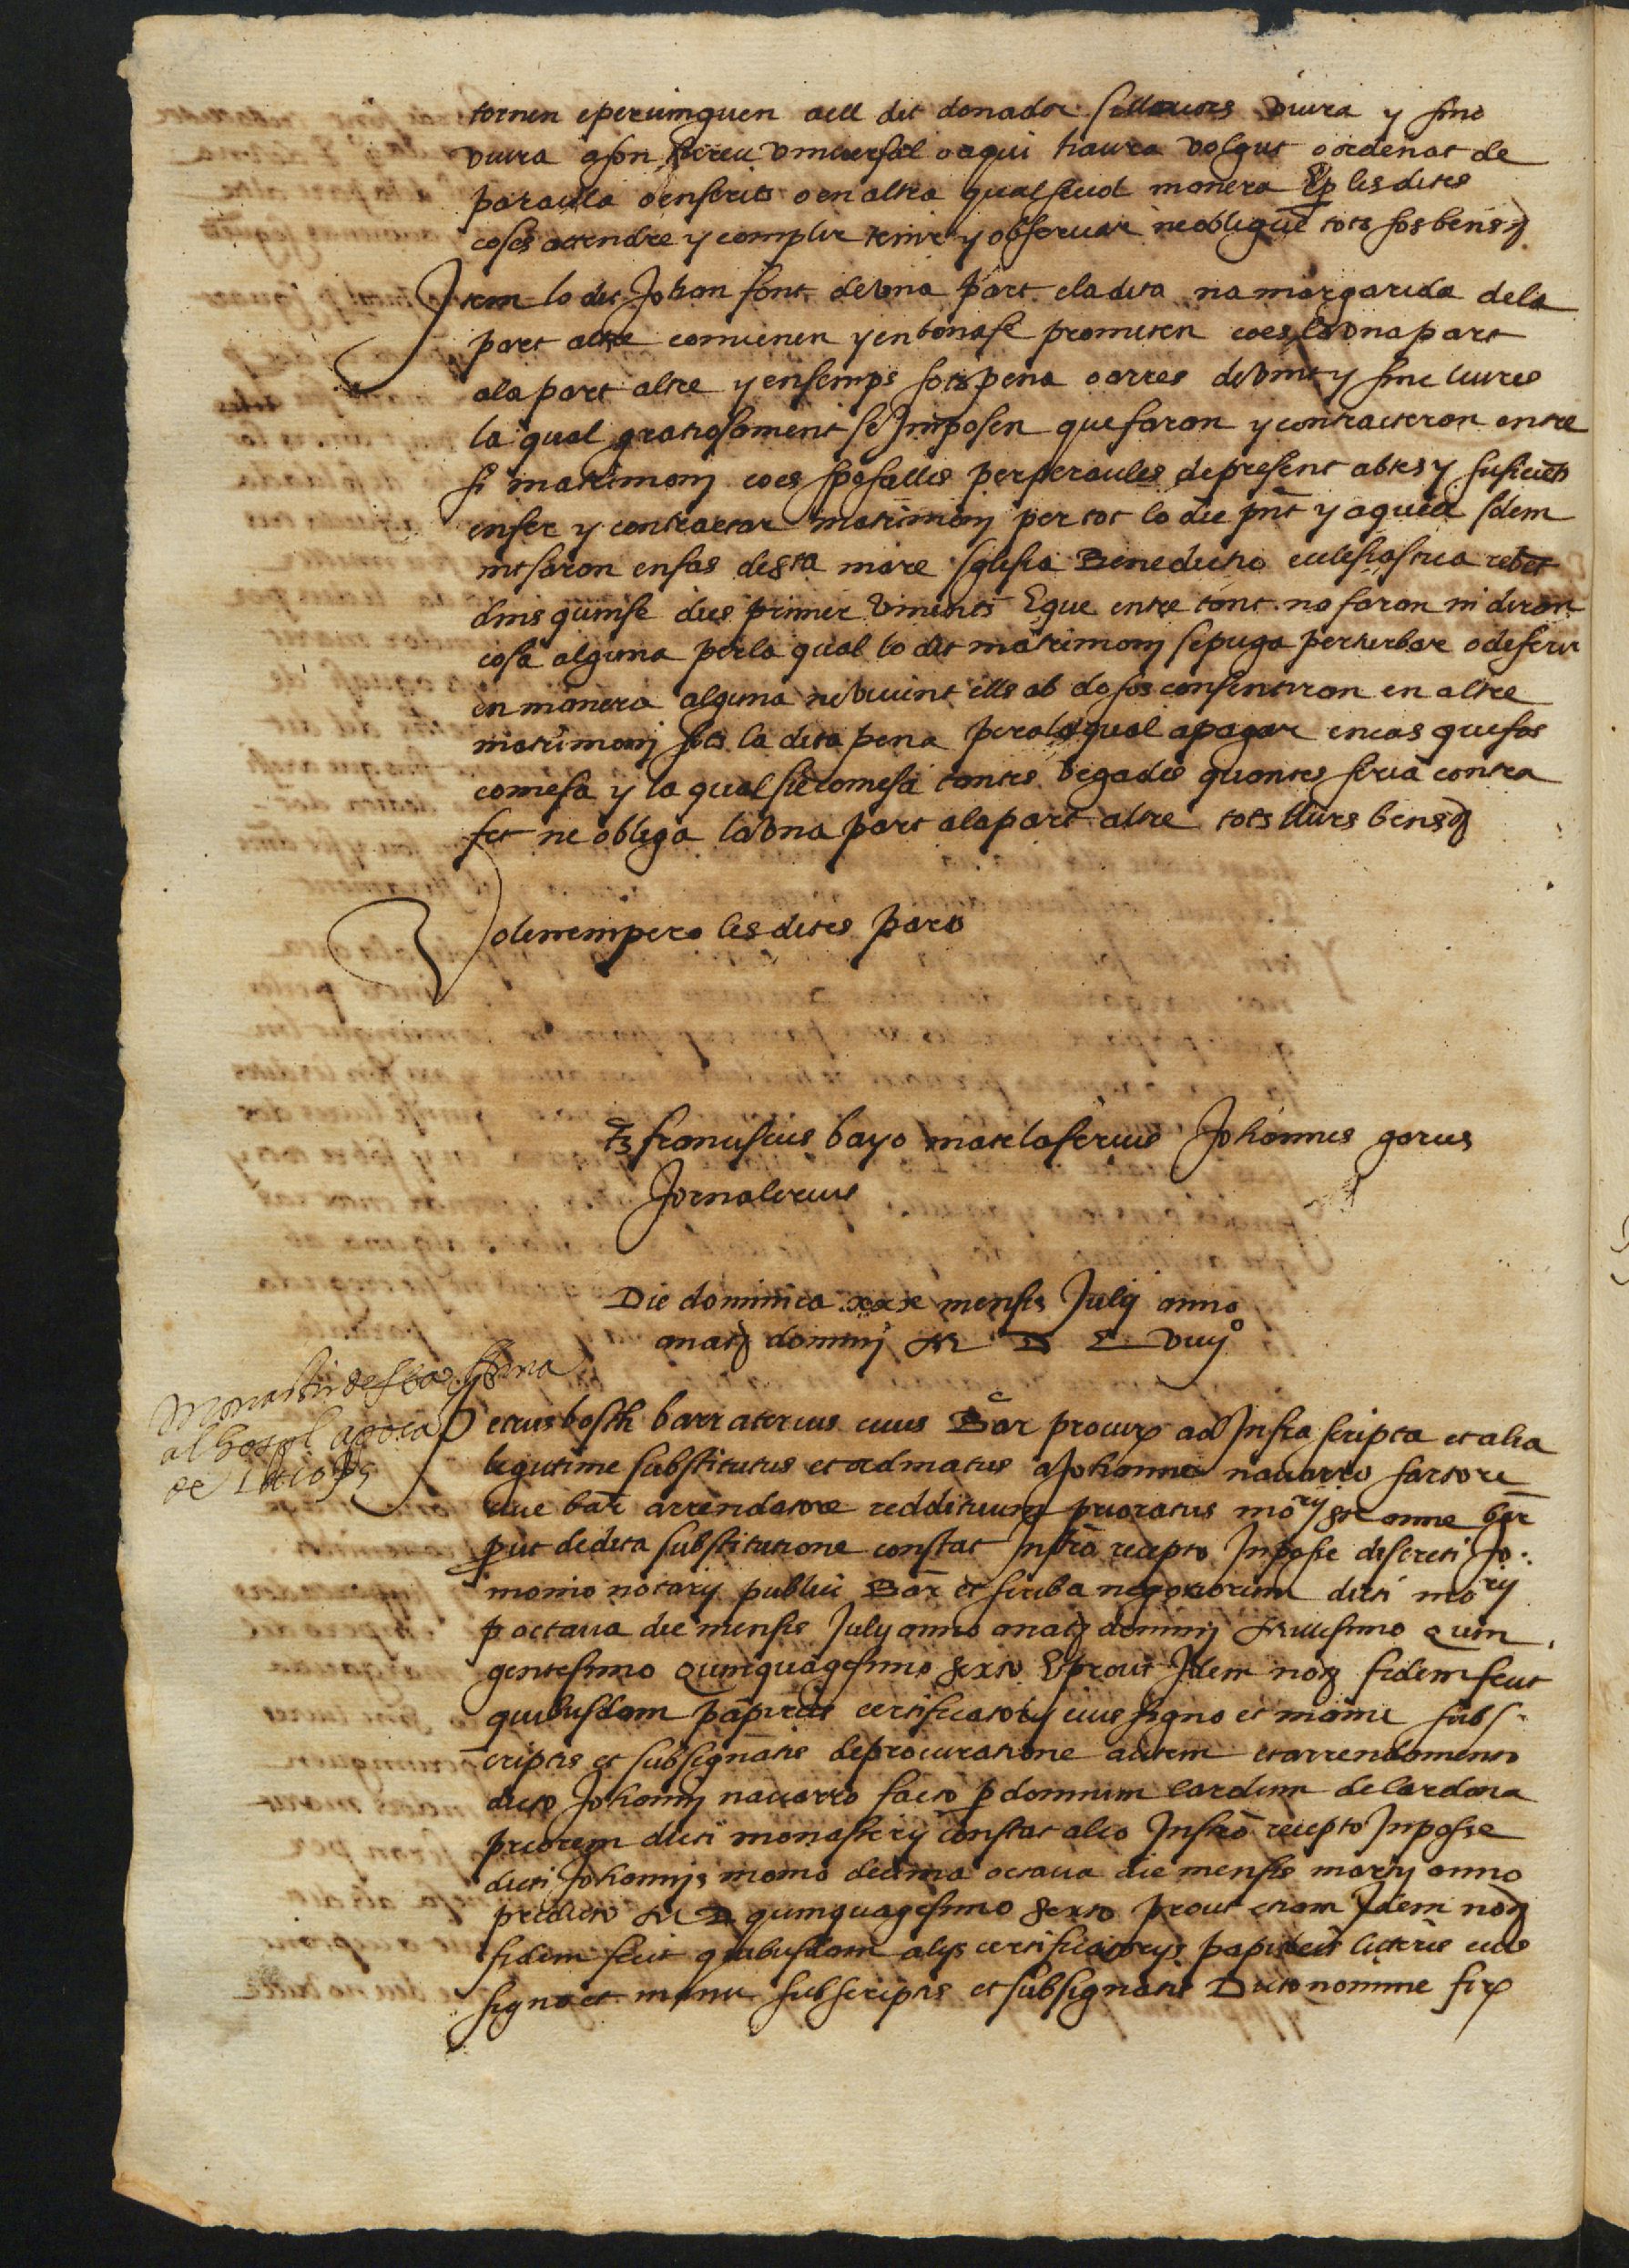 tornen e pervinguen a ell dit donador si llavors viura y sino
viura a son hereu universal o a qui haura volgut o ordenat de
paraula o enscrits o en altra qualsevol manera E p les dites
coses attendre y complir tenir y observar ne obligue tots sos bens
Item lo dit Johan font de una part e la dita na margarida de la
part altre convenen y en bona fe prometen ço es la una part
a la part altre y ensemps sots pena o arres de vint y sinc liures
la qual gratiosament se Imposen que faran y contracteran entre
si matrimonj ço es sposalles per peraules de present abtes y suficiets
en fer y contractar matrimonj per tot lo die pnt y aquell Idem
mt faran en fas de sta mare sglesia Benedictio ecclesiastica rebet
dins quinse dies primer vinents E que entre tant no faran ni diran
cosa alguna per la qual lo dit matrimonj se puga perturbar o deferir
en manera alguna ne vivint ells ab dosos consentiran en altre
matrimonj sots la dita pena per a la qual a pagar en cas que fos
comesa y la qual sie comesa tantes vegades quantes seria contra
fet ne obliga la una part a la part altre tots llurs bens
Volen empero les dites parts
ts franciscus bayo matelaferius Johannes
Jornalerius
Die dominica xxx mensis Julij anno
a nate dominj M D L viiijo
Monastir de sta Anna
al hospl apoca
de
Petrus bosch barraterius civis Bar procur ad Infra scripta et alia
legittime substitutus et ordinatus a Johanne navarro sartore
cive bar arrendatore reddituum prioratus morij ste anne bar
put de dicta substitutione constat Instro recepto In posse discreti Jo.
monio notarij publici Bar et scriba negociorum dicti morij
p octava die mensis July anno a nate dominj Millesimo quin
gentesimo quinquagesimo sexto E prout Idem not fidem fecit
quibusdam papireis certificatorijs eius signo et manu subs-
criptis et subsignatis de procuratione autem et arrendamento
dicto Johannj navarro facto p dominum cardim de cardona
priorem dicti monasterij constat alio Instro recepto In posse
dicti Johannjs monio decima octava die mensis martij anno
predicto M D quinquagesimo sexto prout etiam Idem not
fidem fecit quibusdam alijs certificatorijs papireis litteris eius
signo et manu subscriptis et subsignatis Dicto nomine fir